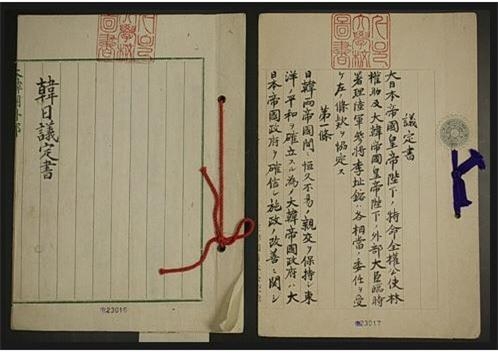 韓日議定書
23016
議定書
大日本帝國皇帝陛下ノ特命全權公使林
權助及大韓帝國皇帝陛下ノ外部大臣臨時
署理陸軍參將李址鎔ハ各相當ノ委任ヲ受
ケ左ノ條款ヲ協定ス
第一條
日韓兩帝國間ニ恒久不易ノ親交ヲ保持シ東
洋ノ平和ヲ確立スル為メ大韓帝國政府ハ大
日本帝國政府ヲ確信シ施政ノ改善ニ關シ
23017